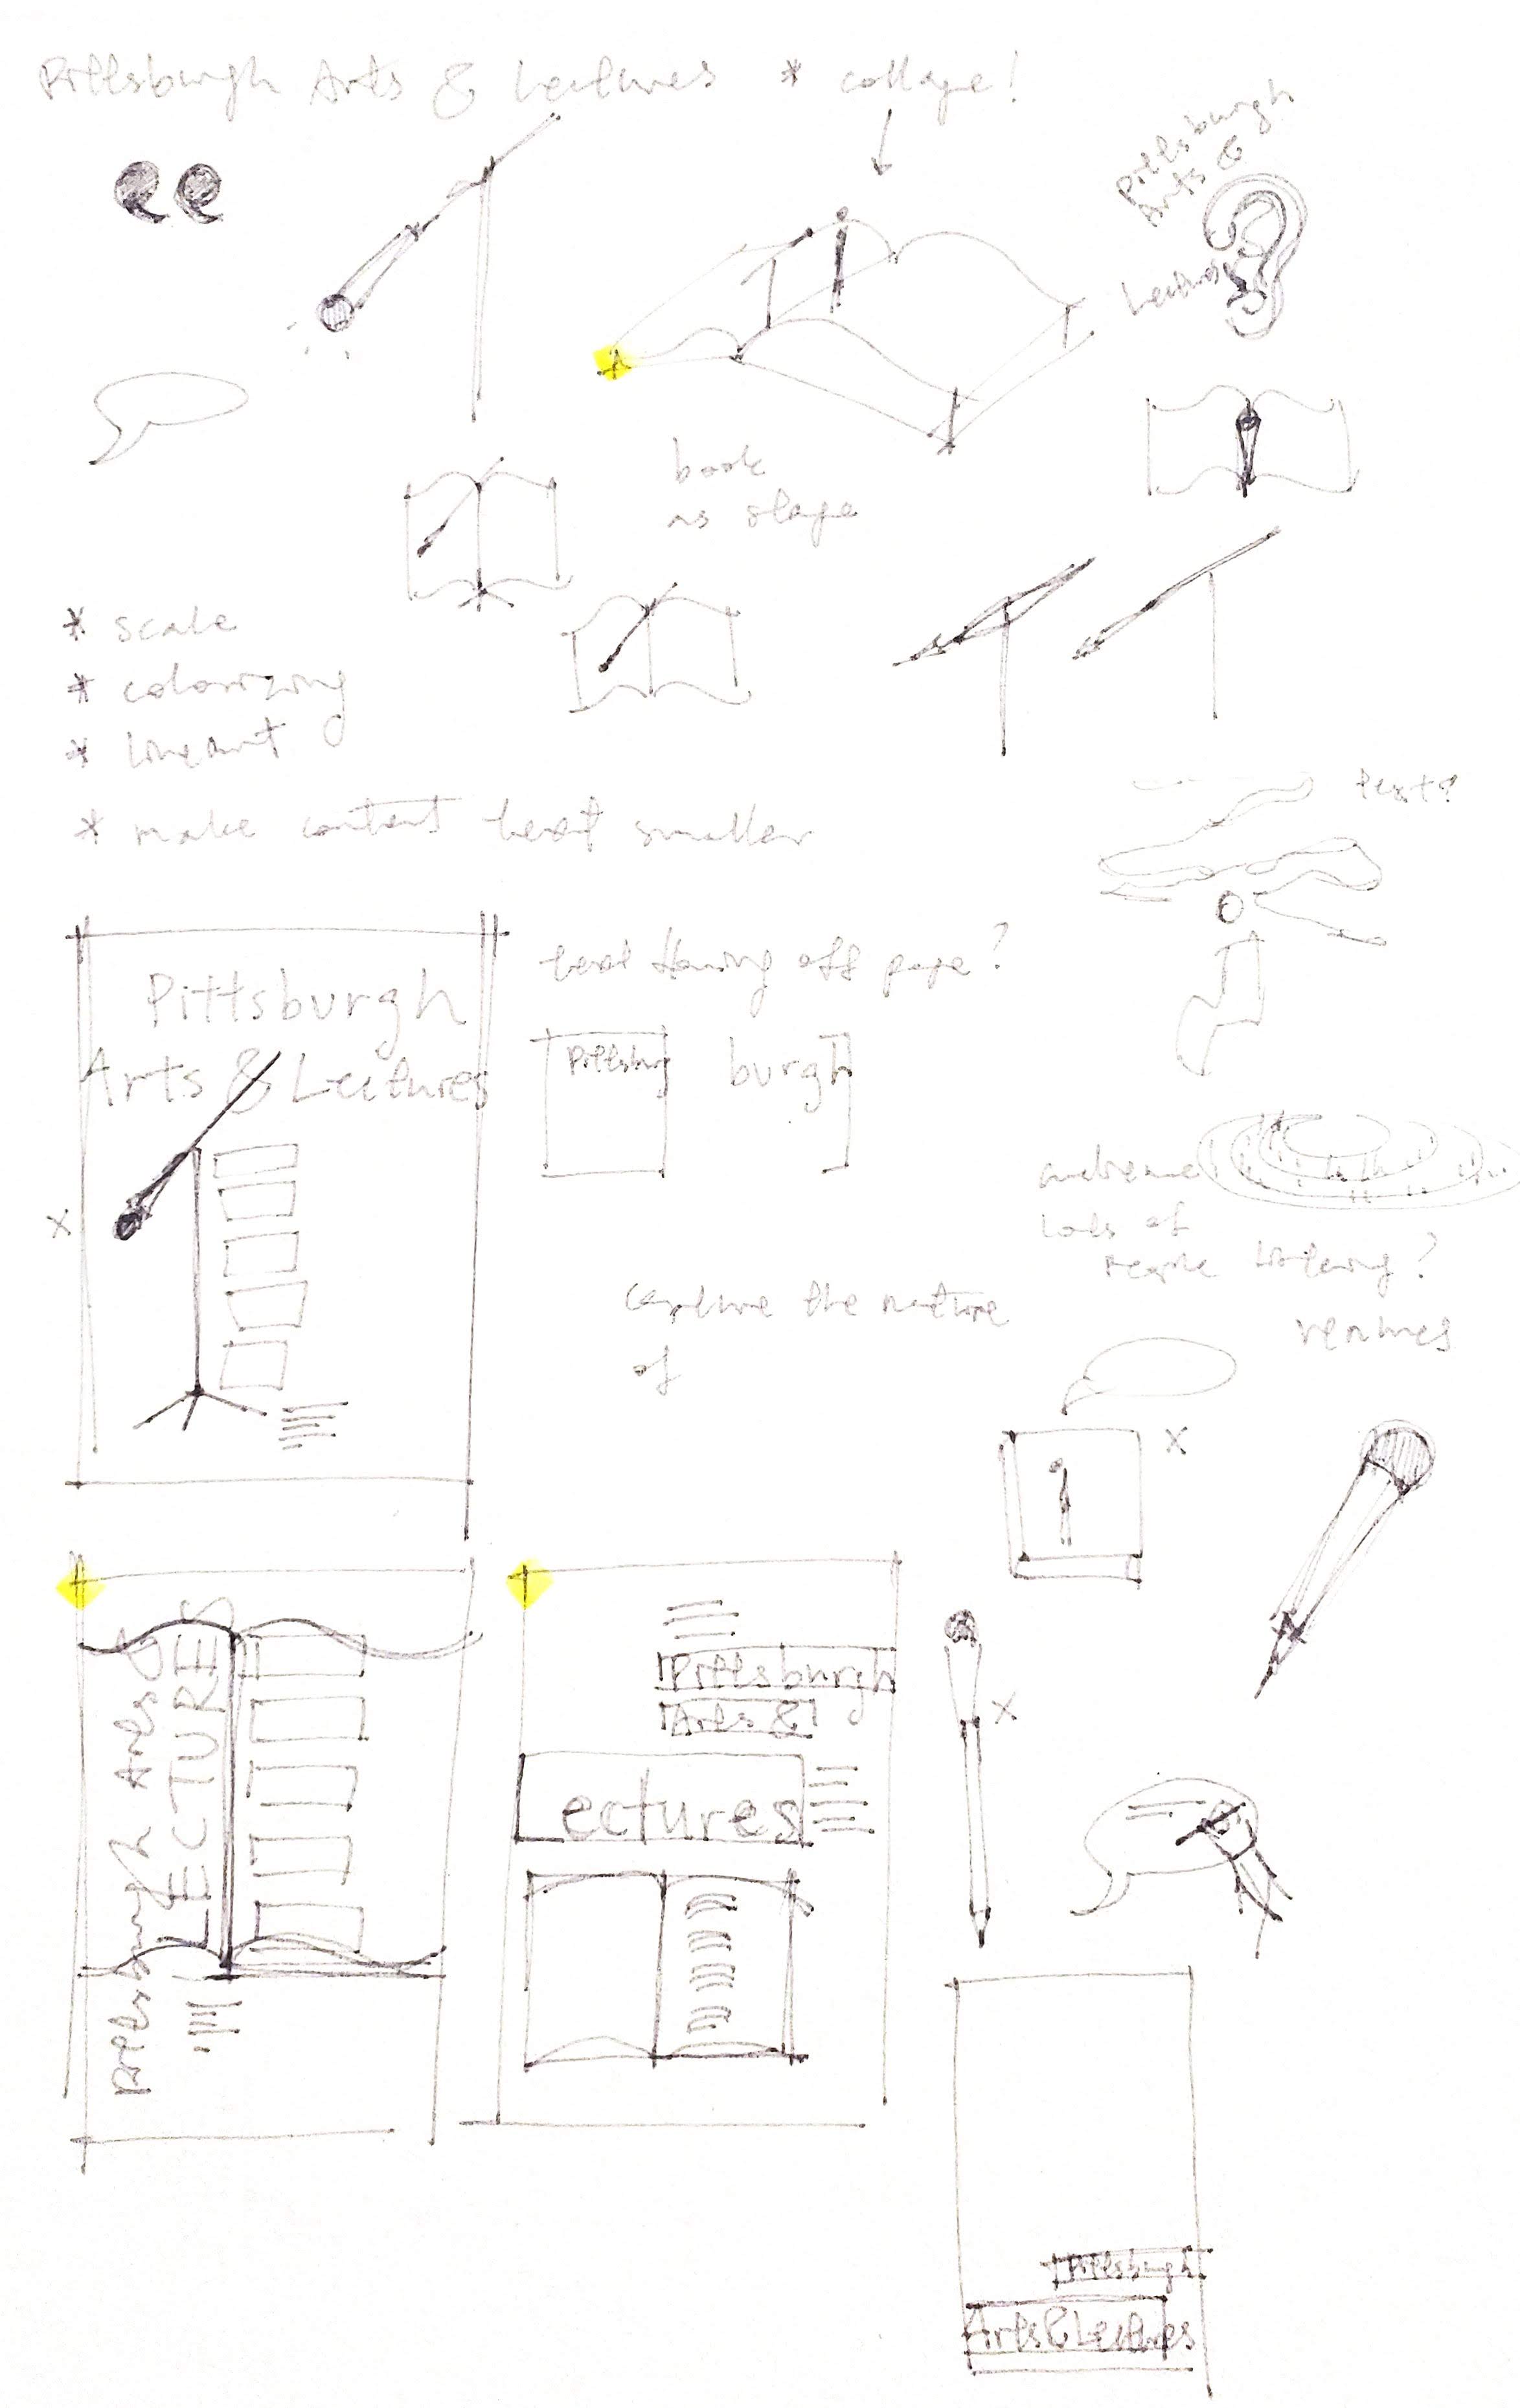 Pittsburgh Arts & Lectures * collage!
Pittsburgh
Arts &
Lectures
book
as stage
* scale
* colorizing
* lineart
* make content text smaller
text?
Pittsburgh
Arts & Lectures
text flowing off page?
Pittsburg
burgh
audience
lots of
people listening?
venues
capture the nature
of
x
x
x
Pittsburgh Arts &
LECTURES
Pittsburgh
Arts &
Lectures
Pittsburgh
Arts & Lectures